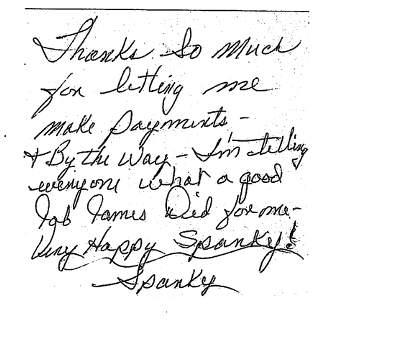 Thanks so much
for letting me
make payments -
+ By the way - I'm telling
everyone what a good
Job James Did for me -
Very Happy Spanky!
Spanky